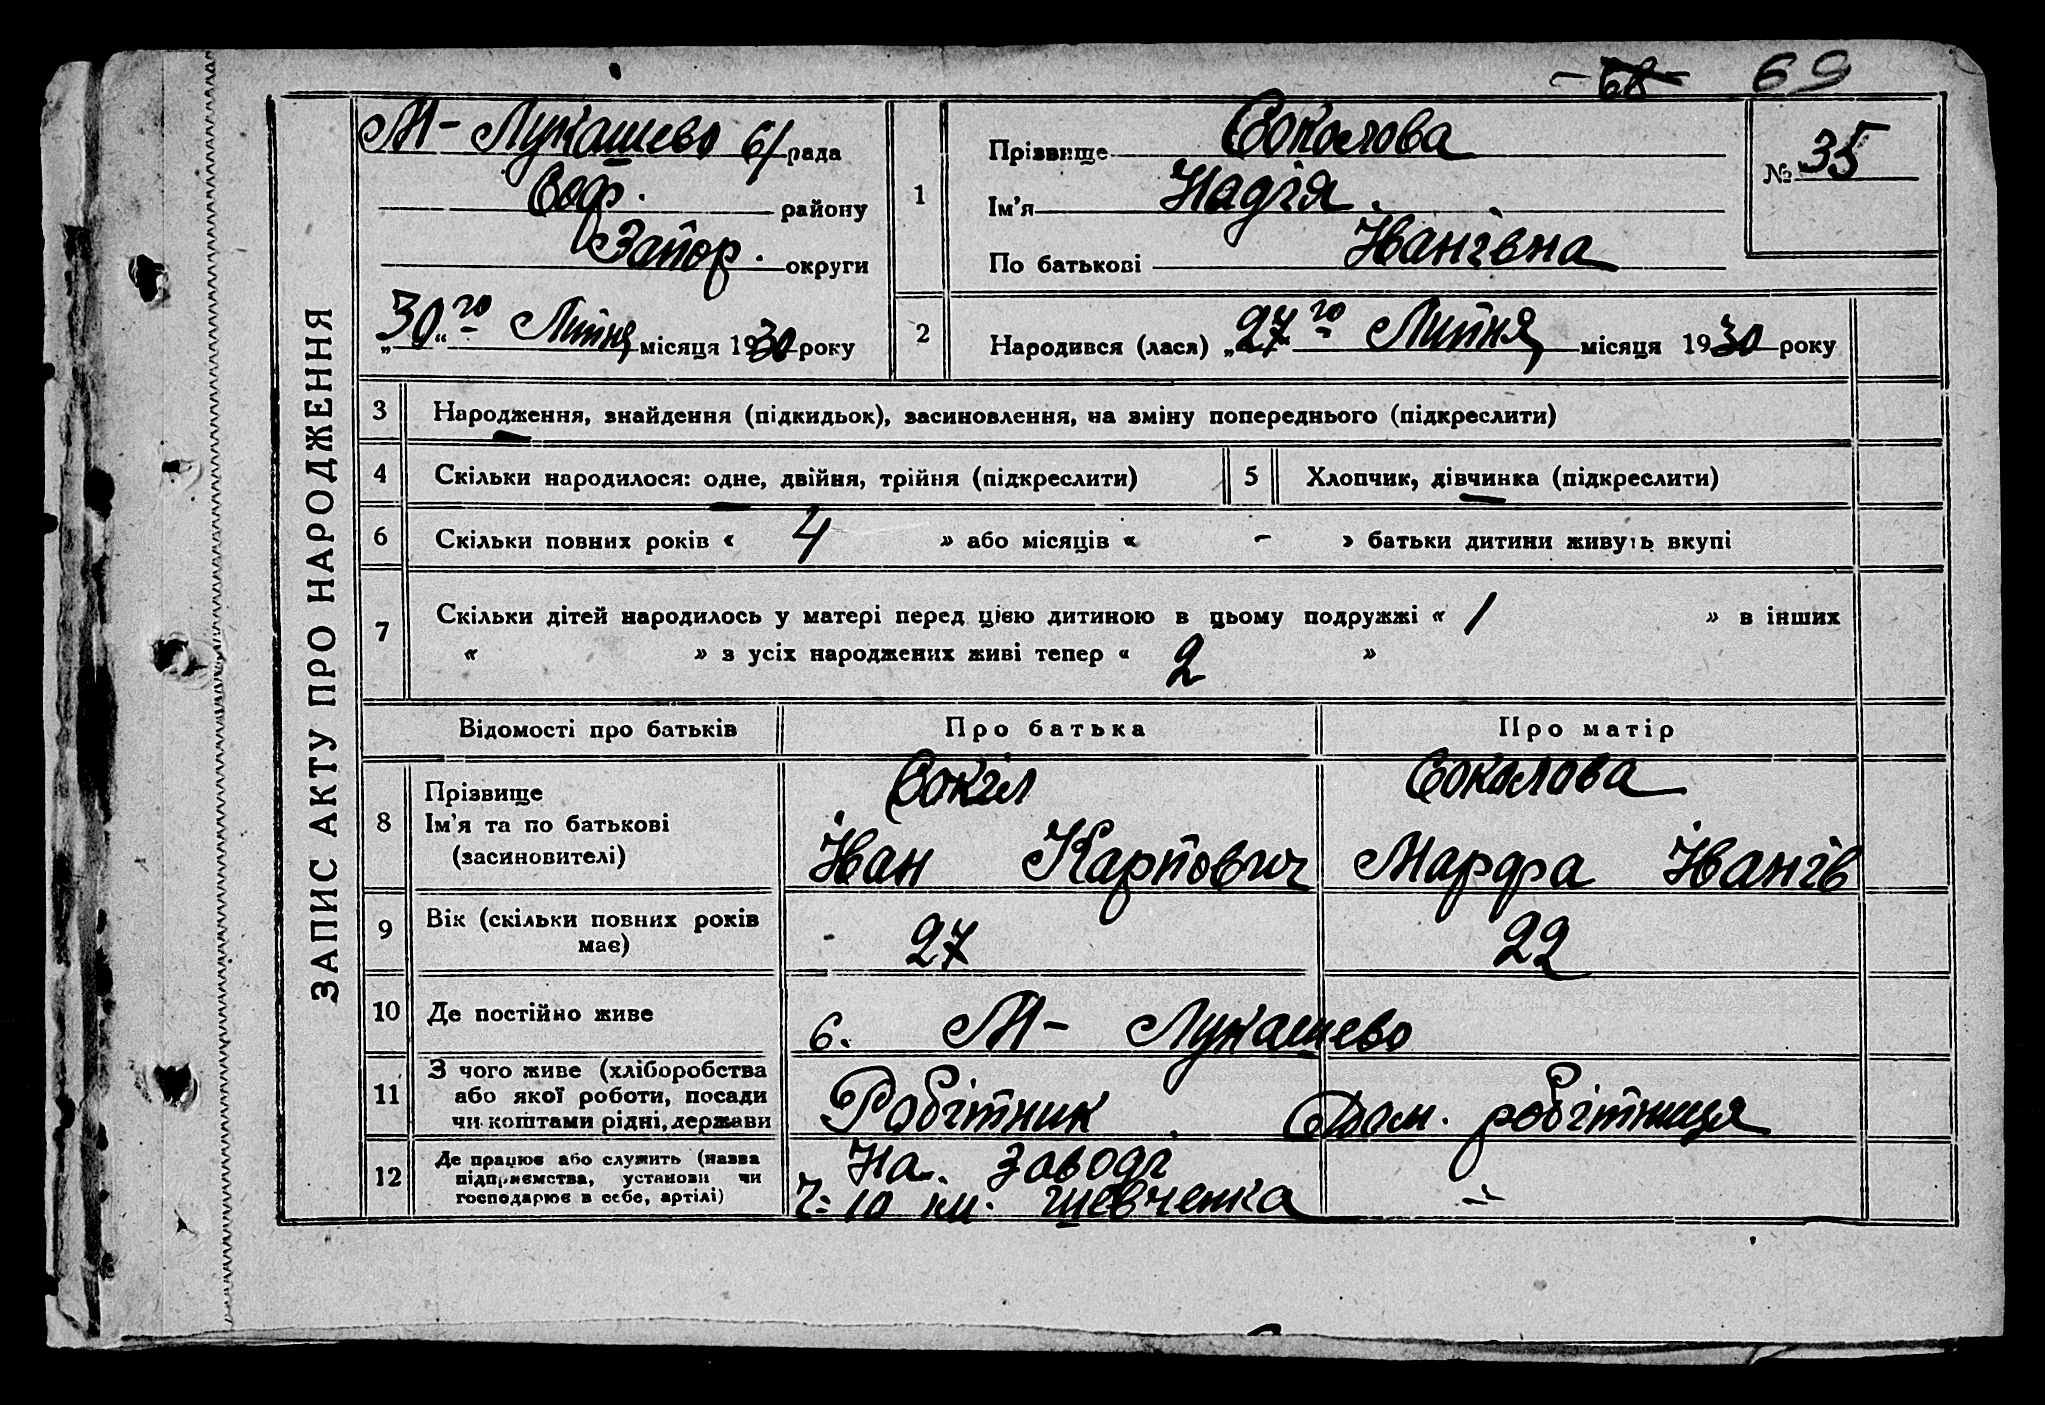 68 69
ЗАПИС АКТУ ПРО НАРОДЖЕННЯ
М-Лукашево с/рада
Соф. району
Запор. округи
„30го“ Липня місяця 1930 року
1
Прізвище Соколова
Ім'я Надія.
По батькові Іванівна
№ 35
2 Народився (лася) „27го Липня місяця 1930 року
3 Народження, знайдення (підкидьок), засиновлення, на зміну попереднього (підкреслити)
4 Скільки народилося: одне, двійня, трійня (підкреслити) 5 Хлопчик, дівчинка (підкреслити)
6 Скільки повних років « 4 » або місяців « - » батьки дитини живуть вкупі
7 Скільки дітей народилось у матері перед цією дитиною в цьому подружжі « 1 » в інших
« » з усіх народжених живі тепер « 2 »
Відомості про батьків Про батька Про матір
8 Прізвище
Ім'я та по батькові
(засиновителі)
Сокіл
Іван Карпович
Соколова
Марфа Іванів
9 Вік (скільки повних років
має)
27 22
10 Де постійно живе с. М-Лукашево
11 З чого живе (хліборобства
або якої роботи, посади
чи коштами рідні, держави
Робітник Дом. робітниця
12 Де працює або служить (назва
підприємства, установи чи
господарює в себе, артілі)
На заводі
Ч: 10 ім. Шевченка -